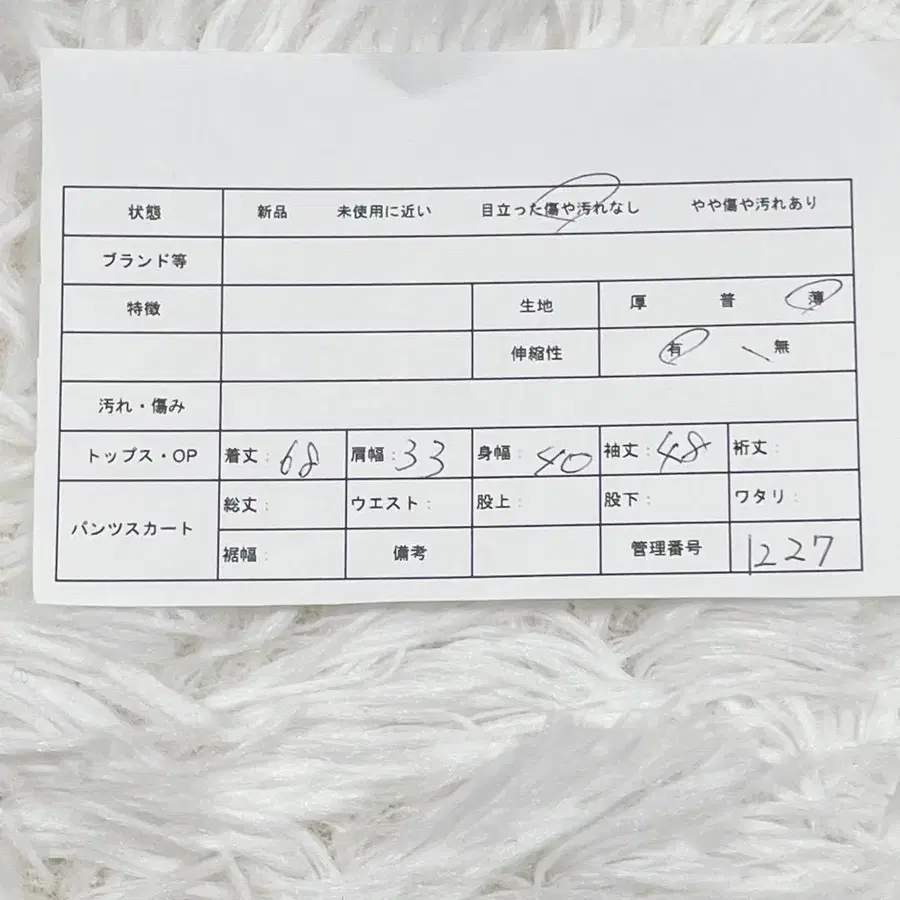 状態 新品 未使用に近い 目立った傷や汚れなし やや傷や汚れあり
ブランド等
特徴 生地 厚 普 薄
伸縮性 有 無
汚れ・傷み
トップス・OP 着丈: 68 肩幅: 33 身幅: 40 袖丈: 48 裄丈:
パンツスカート 総丈: ウエスト: 股上: 股下: ワタリ:
裾幅: 備考 管理番号 1227